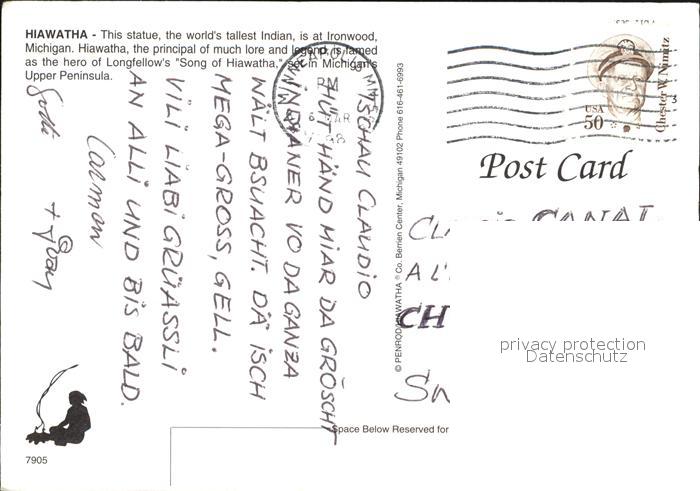 HIAWATHA - This statue, the world's tallest Indian, is at Ironwood,
Michigan. Hiawatha, the principal of much lore and legend, is famed
as the hero of Longfellow's "Song of Hiawatha," set in Michigan's
Upper Peninsula.
TSCHAU CLAUDIO
HÜT HÄND MIAR DA GRÖSCHT
INDIANER VO DA GANZA
WÄLT BSUACHT. DÄ ISCH
MEGA-GROSS, GELL.
VILI LIABI GRÜASSLI
AN ALLI UND BIS BALD.
Carmen
PM
MAR
© PENROD/HIAWATHA ® Co. Berrien Center, Michigan 49102 Phone 616-461-6993
USA
50
Chester W. Nimitz
Post Card
A L'
CH
privacy protection
Datenschutz
Space Below Reserved for
7905